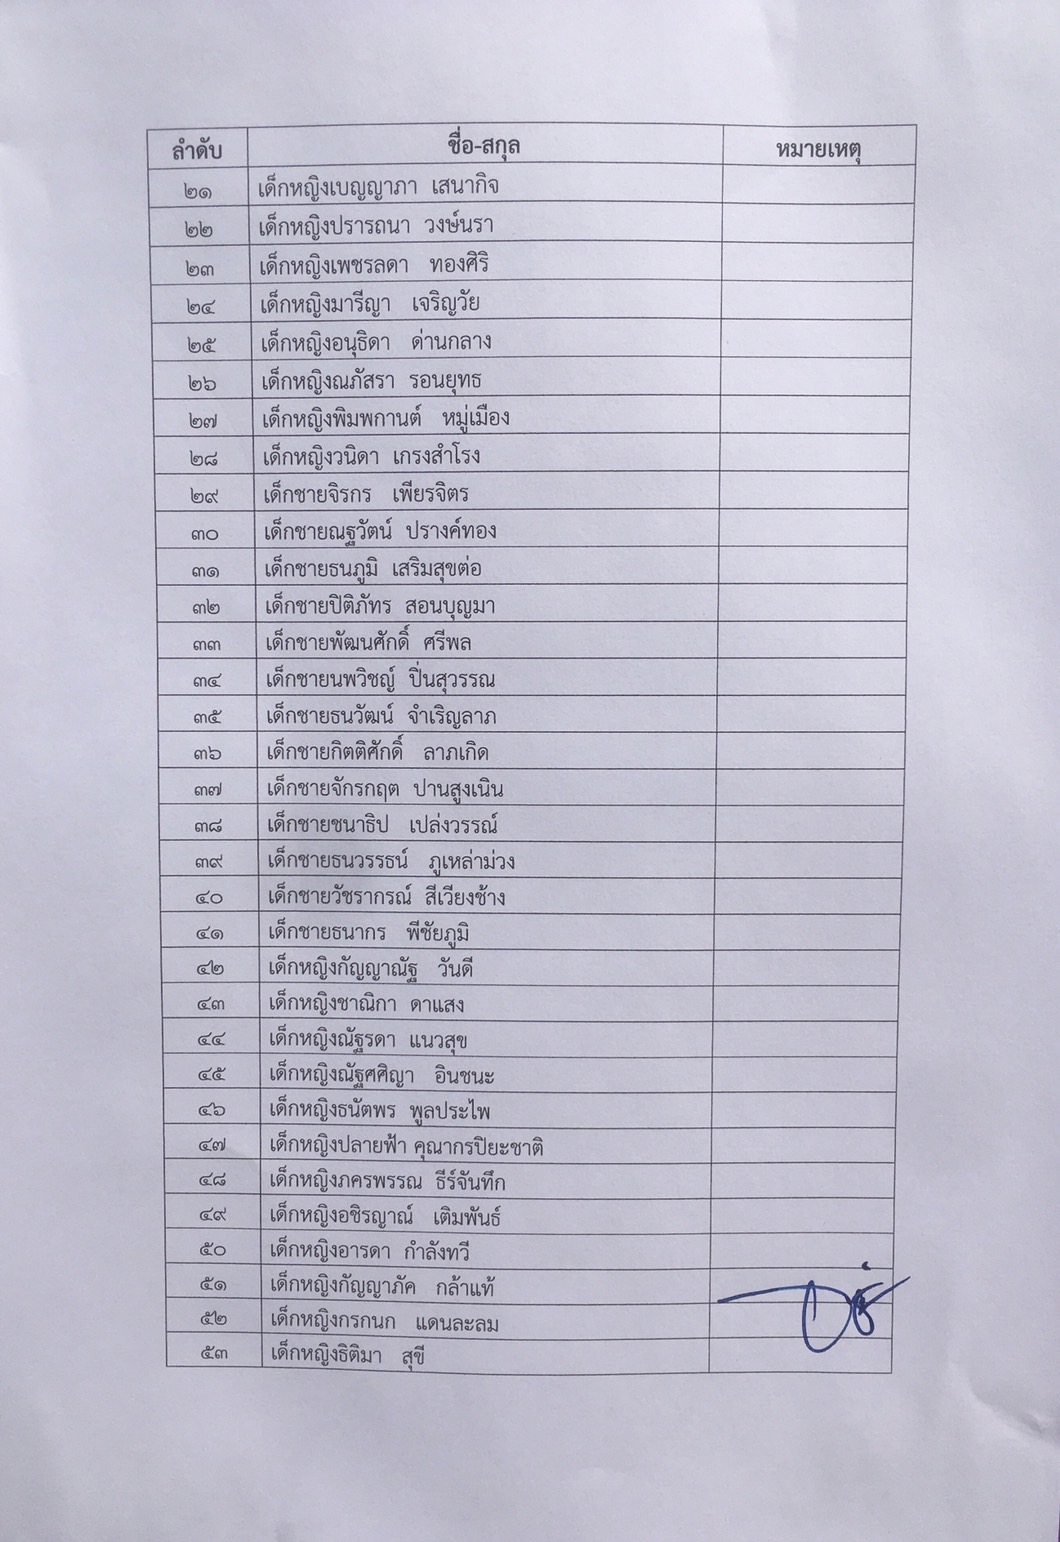 ลำดับ ชื่อ-สกุล หมายเหตุ
๒๑ เด็กหญิงเบญญาภา เสนากิจ
๒๒ เด็กหญิงปรารถนา วงษ์นรา
๒๓ เด็กหญิงเพชรลดา ทองศิริ
๒๔ เด็กหญิงมารีญา เจริญวัย
๒๕ เด็กหญิงอนุธิดา ด่านกลาง
๒๖ เด็กหญิงณภัสรา รอนยุทธ
๒๗ เด็กหญิงพิมพกานต์ หมู่เมือง
๒๘ เด็กหญิงวนิดา เกรงสำโรง
๒๙ เด็กชายจิรกร เพียรจิตร
๓๐ เด็กชายณฐวัตน์ ปรางค์ทอง
๓๑ เด็กชายธนภูมิ เสริมสุขต่อ
๓๒ เด็กชายปิติภัทร สอนบุญมา
๓๓ เด็กชายพัฒนศักดิ์ ศรีพล
๓๔ เด็กชายนพวิชญ์ ปิ่นสุวรรณ
๓๕ เด็กชายธนวัฒน์ จำเริญลาภ
๓๖ เด็กชายกิตติศักดิ์ ลาภเกิด
๓๗ เด็กชายจักรกฤต ปานสูงเนิน
๓๘ เด็กชายชนาธิป เปล่งวรรณ์
๓๙ เด็กชายธนวรรธน์ ภูเหล่าม่วง
๔๐ เด็กชายวัชรากรณ์ สีเวียงช้าง
๔๑ เด็กชายธนากร พีชัยภูมิ
๔๒ เด็กหญิงกัญญาณัฐ วันดี
๔๓ เด็กหญิงชาณิกา ดาแสง
๔๔ เด็กหญิงณัฐรดา แนวสุข
๔๕ เด็กหญิงณัฐศศิญา อินชนะ
๔๖ เด็กหญิงธนัตพร พูลประไพ
๔๗ เด็กหญิงปลายฟ้า คุณากรปิยะชาติ
๔๘ เด็กหญิงภครพรรณ ธีร์จันทึก
๔๙ เด็กหญิงอชิรญาณ์ เติมพันธ์
๕๐ เด็กหญิงอารดา กำลังทวี
๕๑ เด็กหญิงกัญญาภัค กล้าแท้
๕๒ เด็กหญิงกรกนก แดนละลม
๕๓ เด็กหญิงธิติมา สุขี